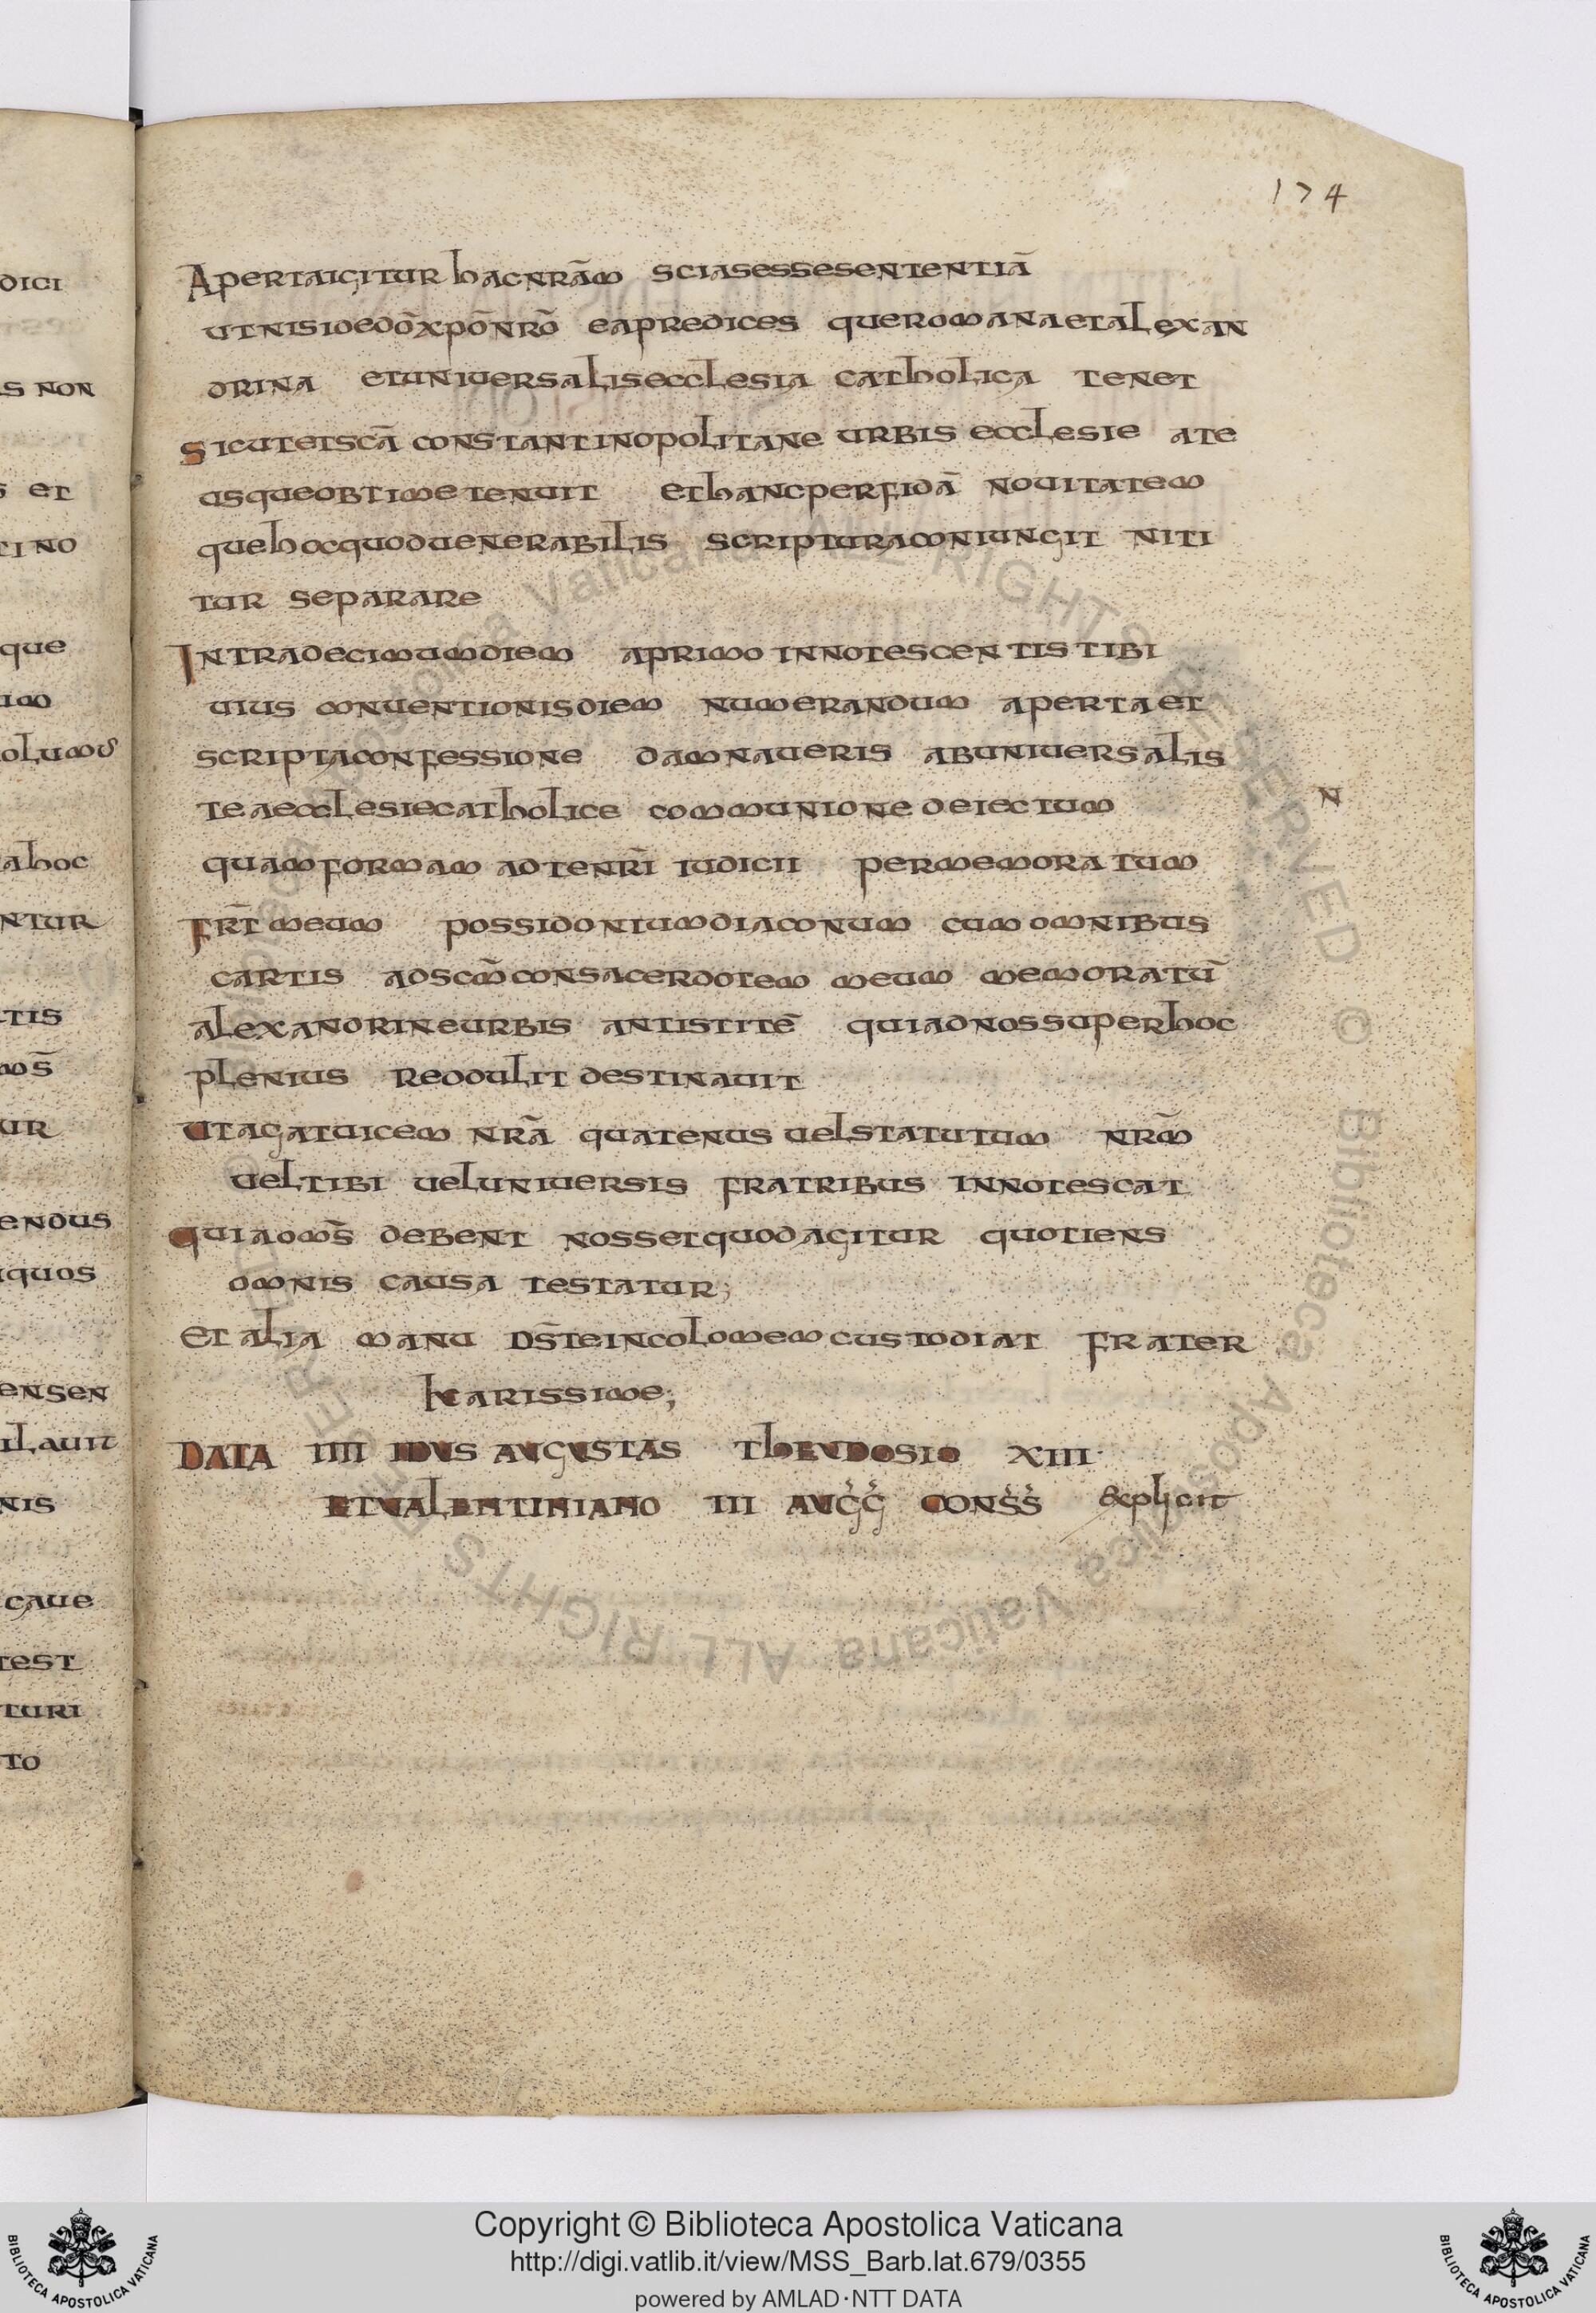 174
Apertaigitur hacnrā̄m sciasessesententiā
utnisidedōxpōnrō eapredices queromanaetalexan
drina etuniversalisecclesia catholica tenet
sicutetscā constantinopolitane urbis ecclesie ate
usqueobtimetenuit ethancperfidā novitatem
quehocquodvenerabilis scripturaconiungit niti
tur separare
Intradecimumdiem aprimo innotescentistibi
uius conventionisdiem numerandum apertaet
scriptaconfessione damnaveris abuniversalis
teaecclesiecatholice communione deiectum
N
quamformam adtenrī iudicii permemoratum
frt̄ meum possidoniumdiaconum cum omnibus
cartis adscm̄consacerdotem meum memoratū
alexandrineurbis antistitē quiadnossuperhoc
plenius reddulit destinavit
utagatvicem nrā quatenus velstatutum nrm̄
veltibi veluniversis fratribus innotescat
quiaoms̄ debent nossetquodagitur quotiens
omnis causa testatur;
et alia manu ds̄teincolomemcustodiat frater
karissime;
DATA IIII IDUS AUGUSTAS ThEUDOSIO XIII·
ETVALENTINIANO III AUGG CONSS explicit
dici
s non
s et
tino
que
im
olums
ahoc
ntur
tis
ms̄
ur
endus
quos
ensen
ilavit
nis
cave
test
turi
to
Copyright © Biblioteca Apostolica Vaticana
http://digi.vatlib.it/view/MSS_Barb.lat.679/0355
powered by AMLAD·NTT DATA
BIBLIOTECA APOSTOLICA VATICANA
BIBLIOTECA APOSTOLICA VATICANA